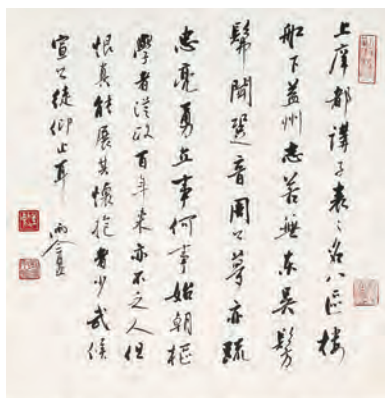 上庠都講子表〻名八區樓
船下益州志若無東吳髣
髴聞跫音周公夢亦疏
忠亮勇立事何事始朝樞
學者從政百年來亦不乏人但
恨真能展其懷抱者少武侯
宣公徒仰止耳
雨盦